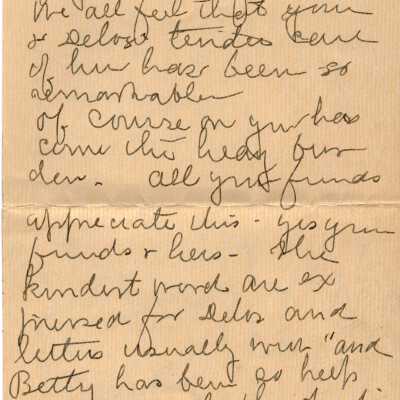 We all feel that your
& Delos' tender care
of her has been so
remarkable
of course on you has
come the heavy bur
den - all your friends
appreciate this - yes your
friends & hers - The
kindest words are ex
pressed for Delos and
letters usually "and
Betty has been so help